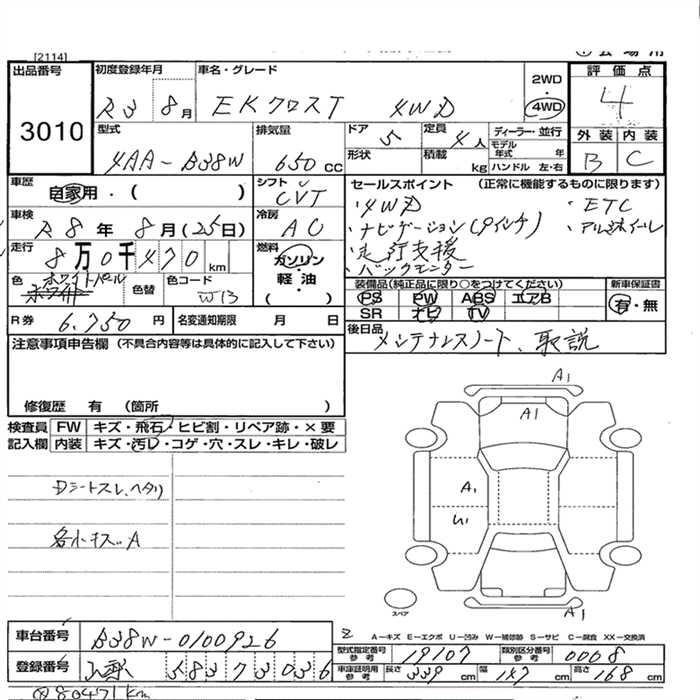 [2114]
出品番号 初度登録年月 車名・グレード 2WD 評価点
3010 R3 8月 EKクロスT 4WD 4WD 4
型式 排気量 ドア 5 定員 4人 ディーラー・並行 外装 内装
4AA-B38W 650cc 形状 積載 kg モデル年式 年 ハンドル 左・右 B C
車歴 自家用・( ) シフト CVT セールスポイント (正常に機能するものに限ります)
車検 R8年 8月(25日) 冷房 AC ・4WD ・ETC
・ナビゲーション(9インチ) ・アルミホイール
走行 8万0千470km 燃料 ガソリン・軽油( ) ・走行支援
・バックモニター
色 ホワイトパール ホワイト 色替 色コード W13
装備品(純正品に限り○をつけてください) 新車保証書
PS PW ABS エアB 有・無
SR ナビ TV
R券 6,750円 名変通知期限 月 日
後日品 メンテナンスノート、取説
注意事項申告欄 (不具合内容等は具体的に記入して下さい)
修復歴 有 (箇所 )
検査員 FW キズ・飛石・ヒビ割・リペア跡・×要
記入欄 内装 キズ・汚レ・コゲ・穴・スレ・キレ・破レ
Dシートスレ、ヘタリ
各小キズA
A1
A1
A1
U1
A1
スペア
A-キズ E-エクボ U-凹み W-補修跡 S-サビ C-腐食 XX-交換済
車台番号 B38W-0100926
型式指定番号 参考 19107 類別区分番号 参考 0008
登録番号 583 7 3036
車庫証明用 参考 長さ 339cm 幅 147cm 高さ 168cm
80471km